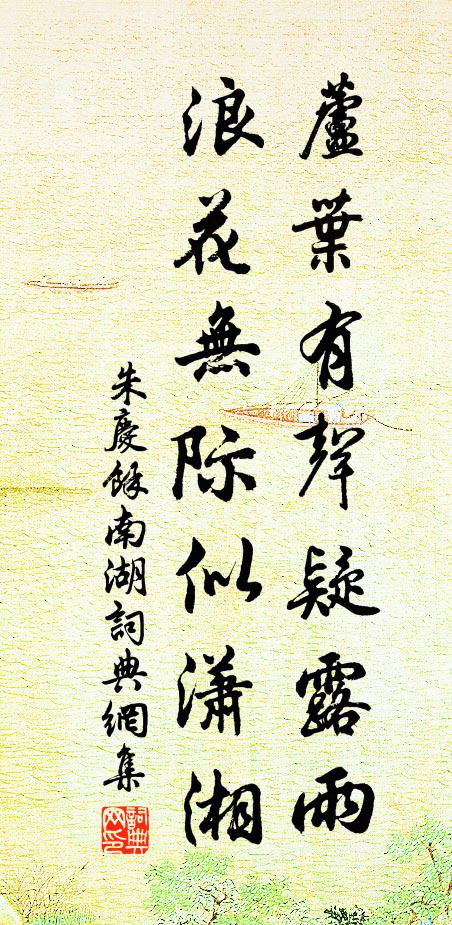 蘆葉有聲疑露雨
浪花無际似瀟湘
朱慶餘南湖詞典網集
詞典網印